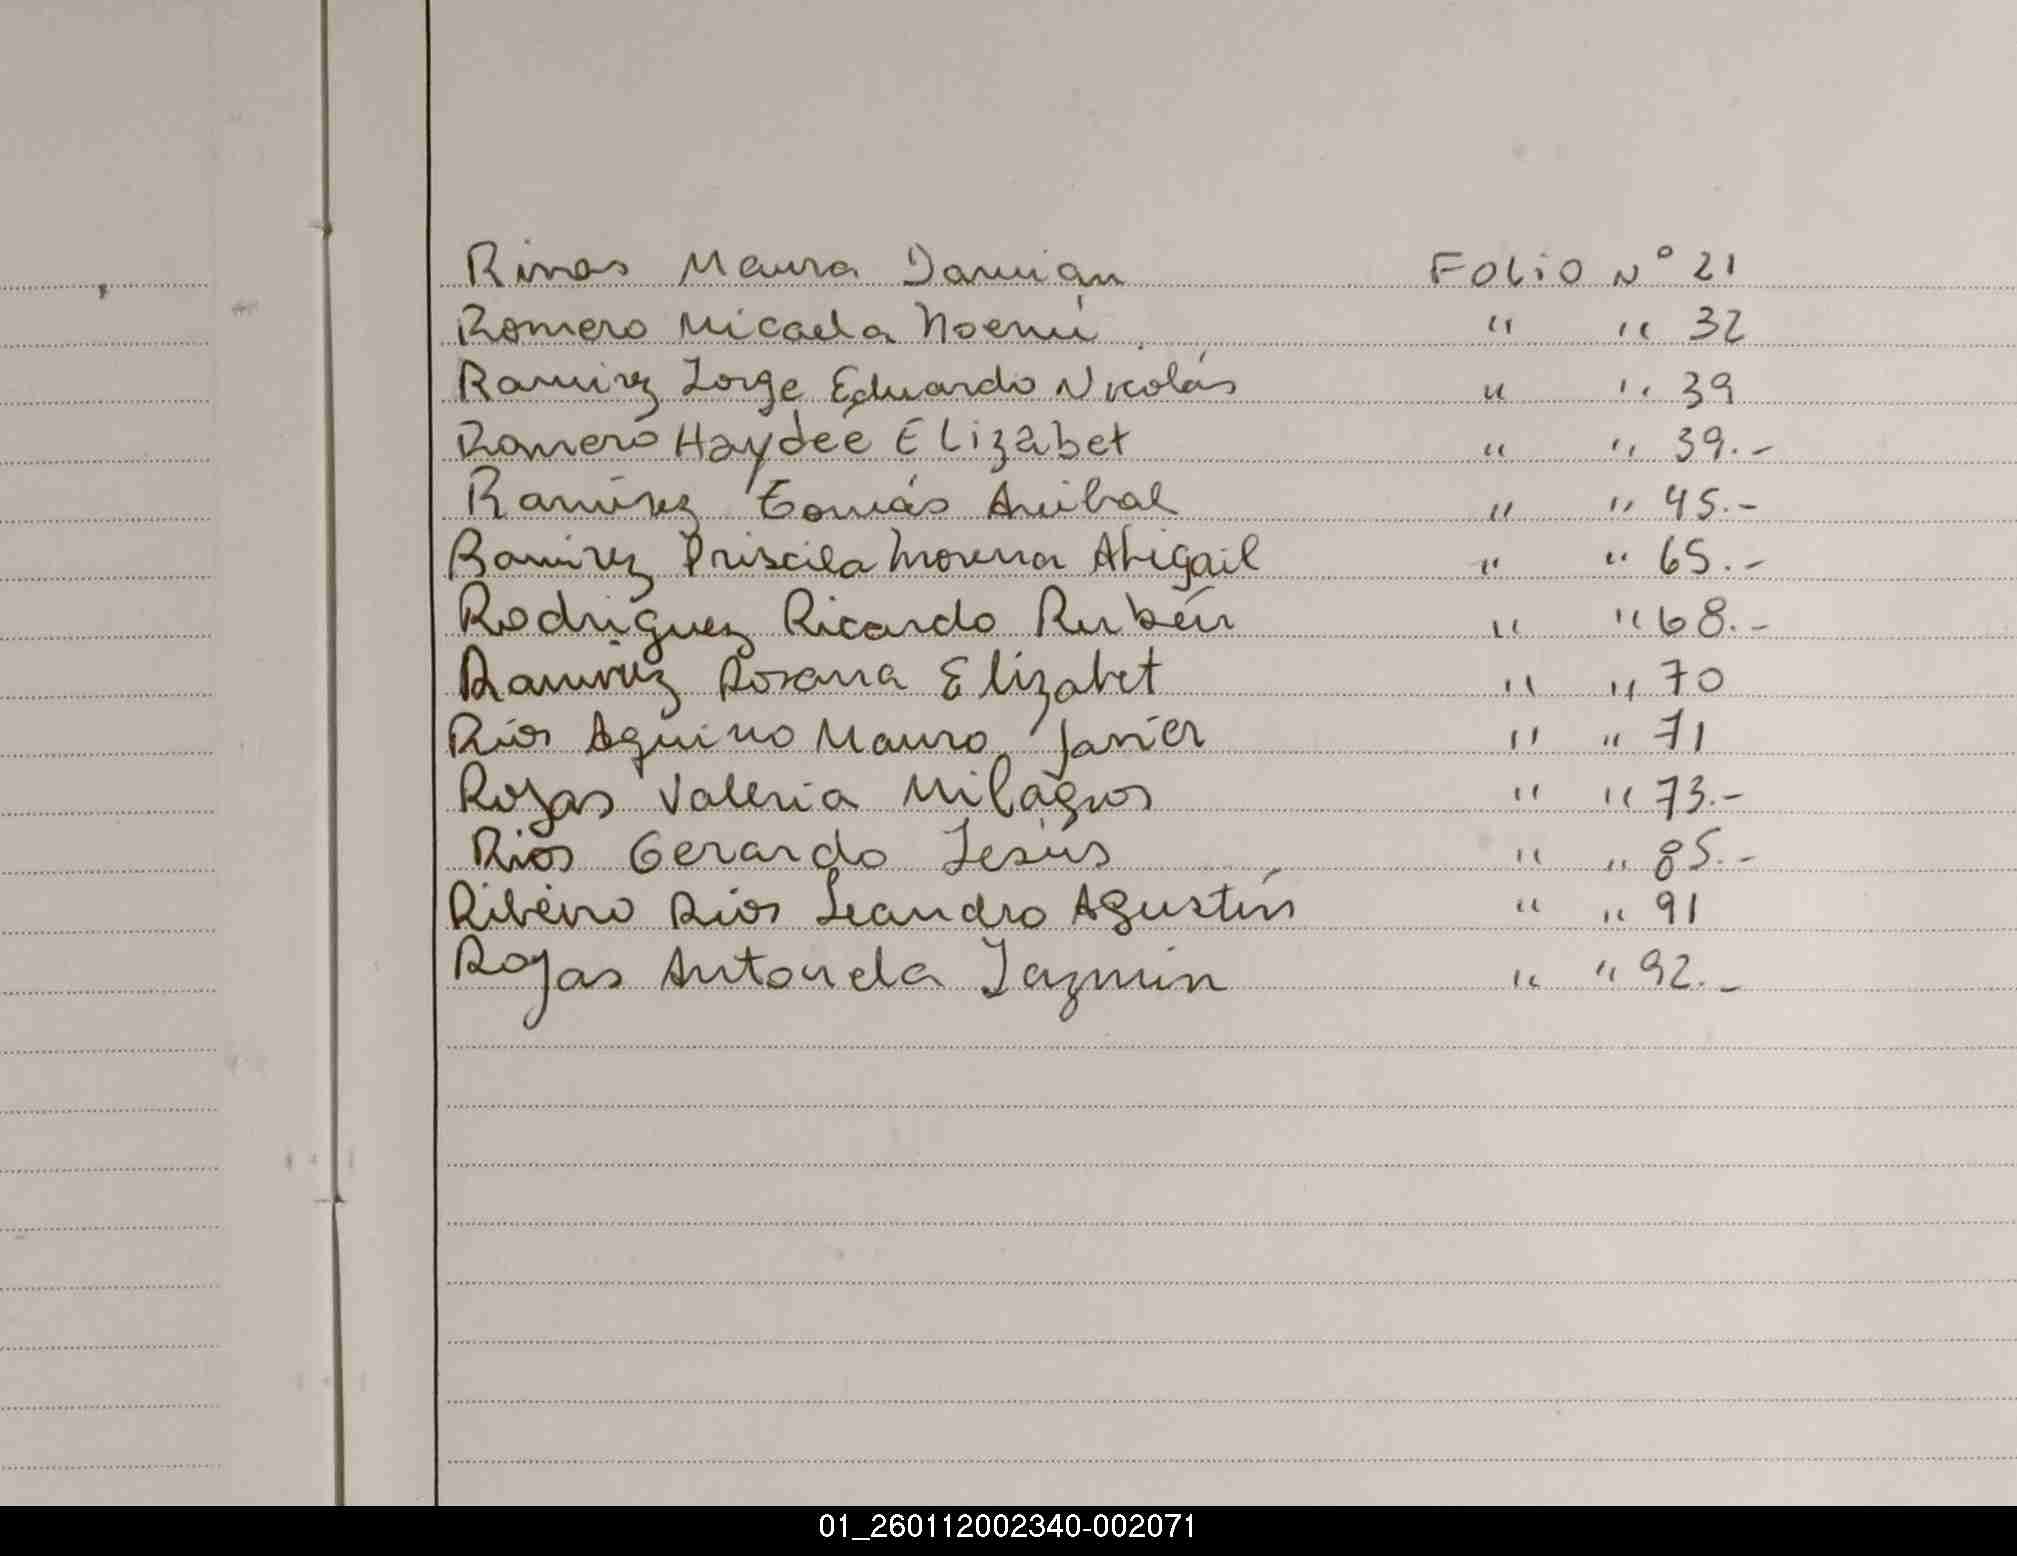 Rivas Maura Damián Folio Nº 21
Romero Micaela Noemí " " 32
Ramirez Jorge Eduardo Nicolás " " 39
Romero Haydee Elizabet " " 39.-
Ramírez Tomás Anibal " " 45.-
Ramirez Priscila Morena Abigail " " 65.-
Rodriguez Ricardo Rubén " " 68.-
Ramirez Rosana Elizabet " " 70
Ríos Aquino Mauro Javier " " 71
Rojas Valeria Milagros " " 73.-
Rios Gerardo Jesús " " 85.-
Ribeiro Rios Leandro Agustín " " 91
Rojas Antonela Jazmin " " 92.-
01_260112002340-002071